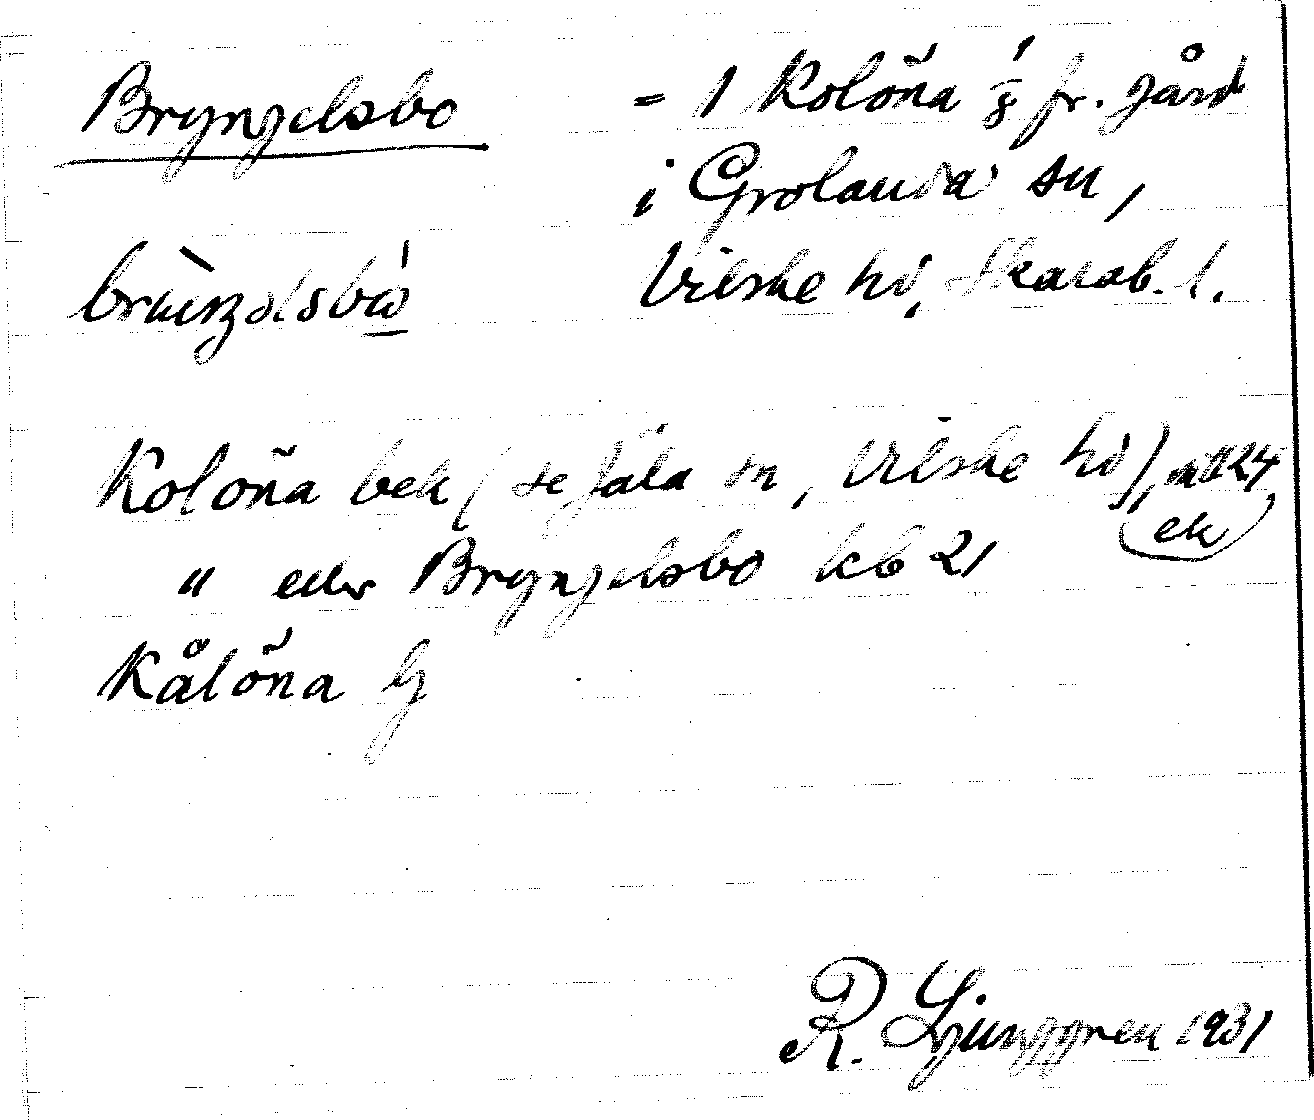 Bryngelsbo = 1 Kolöna ⅛ fr. gård
i Grolanda sn,
Vilske hd, Skarab. l.
Kolöna bek (se Jäla sn, Vilske hd),
ek
" eller Bryngelsbo kb 21
Kålöna
R. Ljunggren 1931